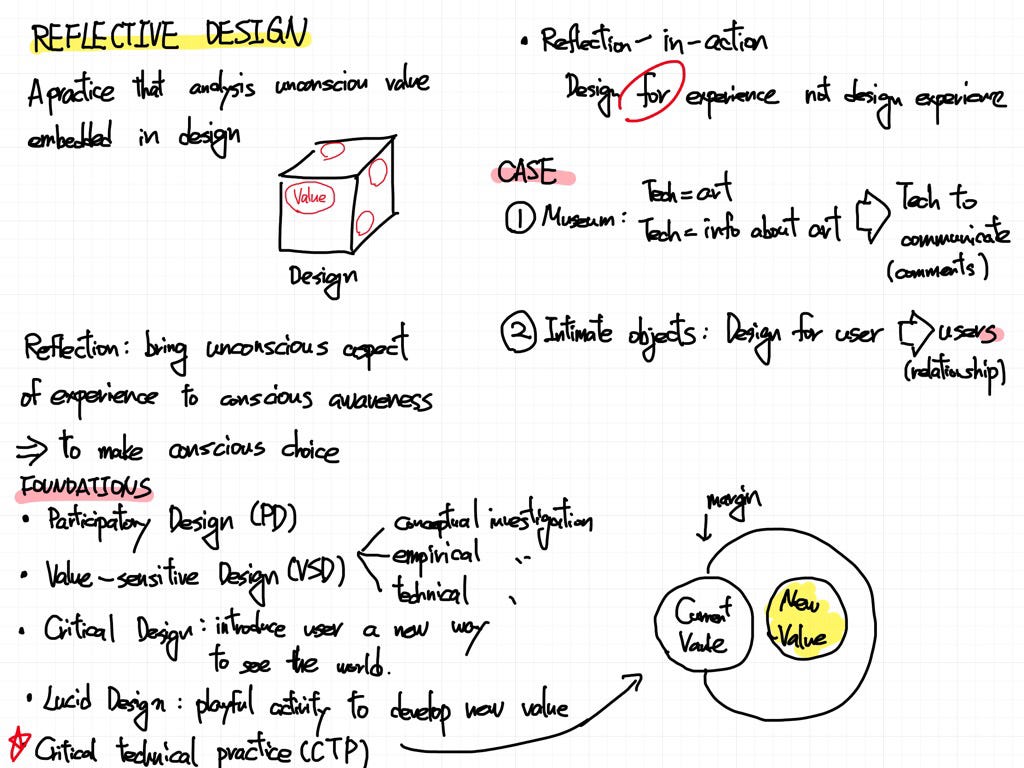 REFLECTIVE DESIGN
A practice that analysis unconsciou value
embedded in design
Value
Design
Reflection: bring unconscious aspect
of experience to conscious awaveness
⇒ to make conscious choice
FOUNDATIONS
• Participatory Design (PD)
• Value-sensitive Design (VSD)
conceptual investigation
empirical 〃
technical 〃
• Critical Design: introduce user a new way
to see the world.
• Lucid Design: playful activity to develop new value
☆ Critical technical practice (CCTP)
• Reflection-in-action
Design for experience not design experience
CASE
① Museum:
Tech = art
Tech = info about art
⇒ Tech to
communicate
(comments)
② Intimate objects: Design for user ⇒ users
(relationship)
margin
Current
Value
New
Value